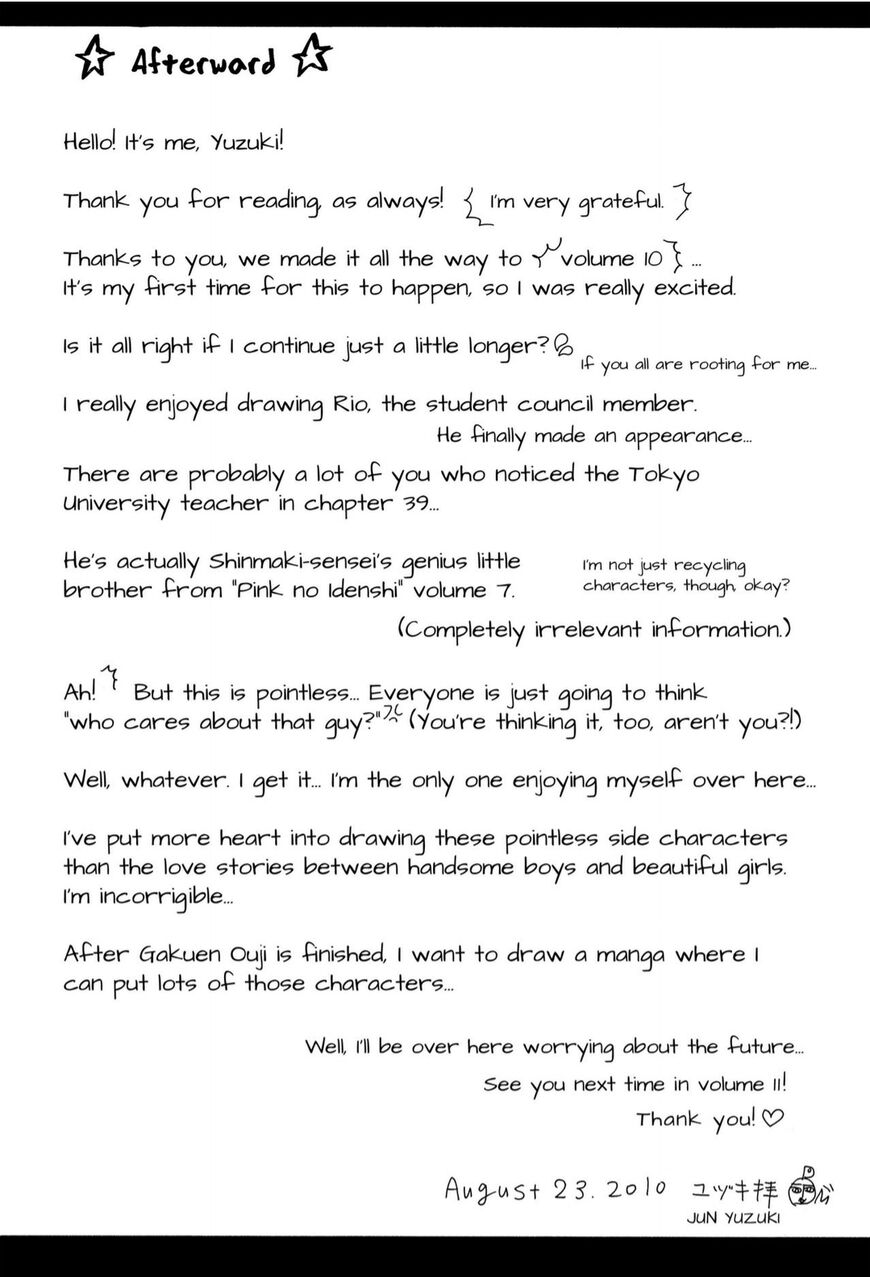 ☆ Afterward ☆
Hello! It's me, Yuzuki!
Thank you for reading, as always! I'm very grateful.
Thanks to you, we made it all the way to volume 10...
It's my first time for this to happen, so I was really excited.
Is it all right if I continue just a little longer?
If you all are rooting for me...
I really enjoyed drawing Rio, the student council member.
He finally made an appearance...
There are probably a lot of you who noticed the Tokyo
University teacher in chapter 39...
He's actually Shinmaki-sensei's genius little
brother from "Pink no Idenshi" volume 7.
I'm not just recycling
characters, though, okay?
(Completely irrelevant information.)
Ah! But this is pointless... Everyone is just going to think
"who cares about that guy?" (You're thinking it, too, aren't you?!)
Well, whatever. I get it... I'm the only one enjoying myself over here...
I've put more heart into drawing these pointless side characters
than the love stories between handsome boys and beautiful girls.
I'm incorrigible...
After Gakuen Ouji is finished, I want to draw a manga where I
can put lots of those characters...
Well, I'll be over here worrying about the future...
See you next time in volume 11!
Thank you! ♡
August 23. 2010 ユヅキ拝
JUN YUZUKI